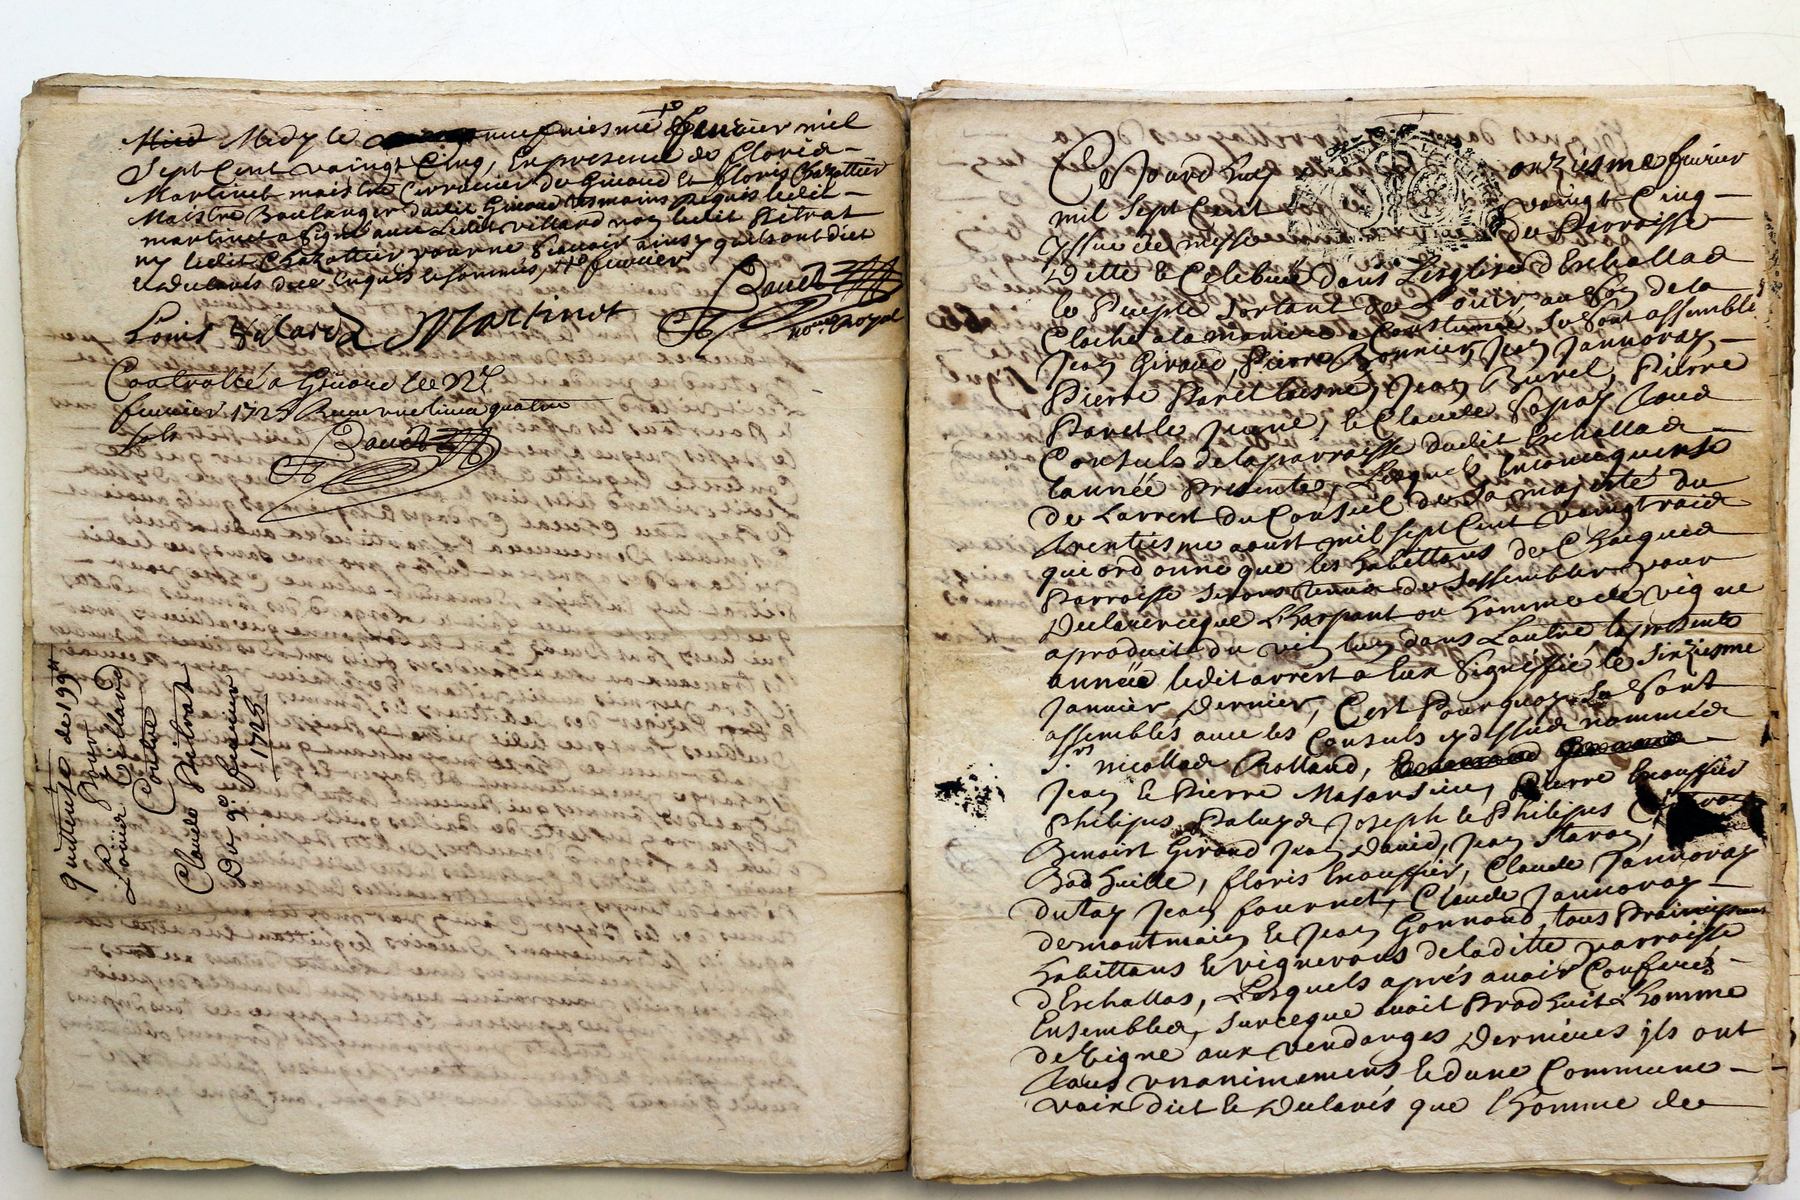 Midy le neufviesme fevrier mil
Sept Cent vaingt Cinq, En presence de Floris
Martinet maistre Cirurier de Givord Et floris Chazottier
Maistre Boulanger dudit Givord tesmoins requis ledit
martinet a signé avec ledit villard non ledit Pitrat
ny ledit Chazottier pour ne scavoir ainsy quils ont dict
de ce Enquis le sommés, fevrier
Louis Vilard Martinet
no.re Royal
Controllé a Givord le
fevrier 172 Receu neuf livres quatre
sols
quittance de 199
Pour
Louis Villard
Contre
Claude Pitrat
Du 9e fevrier
1725
Ce Jourdhuy onziesme fevrier
mil sept Cent vaingt Cinq
yssue de messe de Parroisse
ditte & Celebrée dans Lesglise dEschallas
le Peuple sortant de Louir au son de la
Cloche a la maniere a Coustumée, se sont assemblé
Jean Giroud, Pierre Bonnier, Jean Jannoray
Pierre Paret laisné, Jean Burel, Pierre
Paret le Jeune, & Claude Papay tous
Consuls de la parroisse dudit Eschallas
lannée Presente, Lesquels En consequense
de Larrest du Conseil de sa majesté du
trentiesme aoust mil sept Cent vaingt trois
qui ordonne que les habittans de Chacque
Parroisse seront tenus de sassembler pour
declarer ce que Lharpant ou homme de vigne
a produit du vin dans Lautre la presente
année ledit arrest a Eux signiffié le sinziesme
Janvier dernier, Cest Pourquoy se sont
assemblés avec les Consuls cy dessus nommés
Srs nicollas Rolland,
Jean & Pierre Majansieu, Pierre
Philipus Joseph & Philipus
Benoist Giroud Jean David, Jean
floris Claude Jannoray
dutay Jean fournet, Claude Jannoray
de montmain & Jean Gonnand, tous Prainsipaux
habittans & vignerons de la ditte parroisse
dEschallas, Lesquels aprés avoir Conferés
Ensembles, sur ce que avoit Prodhuit Lhomme
de vigne aux vendanges dernieres ils ont
tous unanimemens & dune Commune
voix dict & declarés que lhomme de